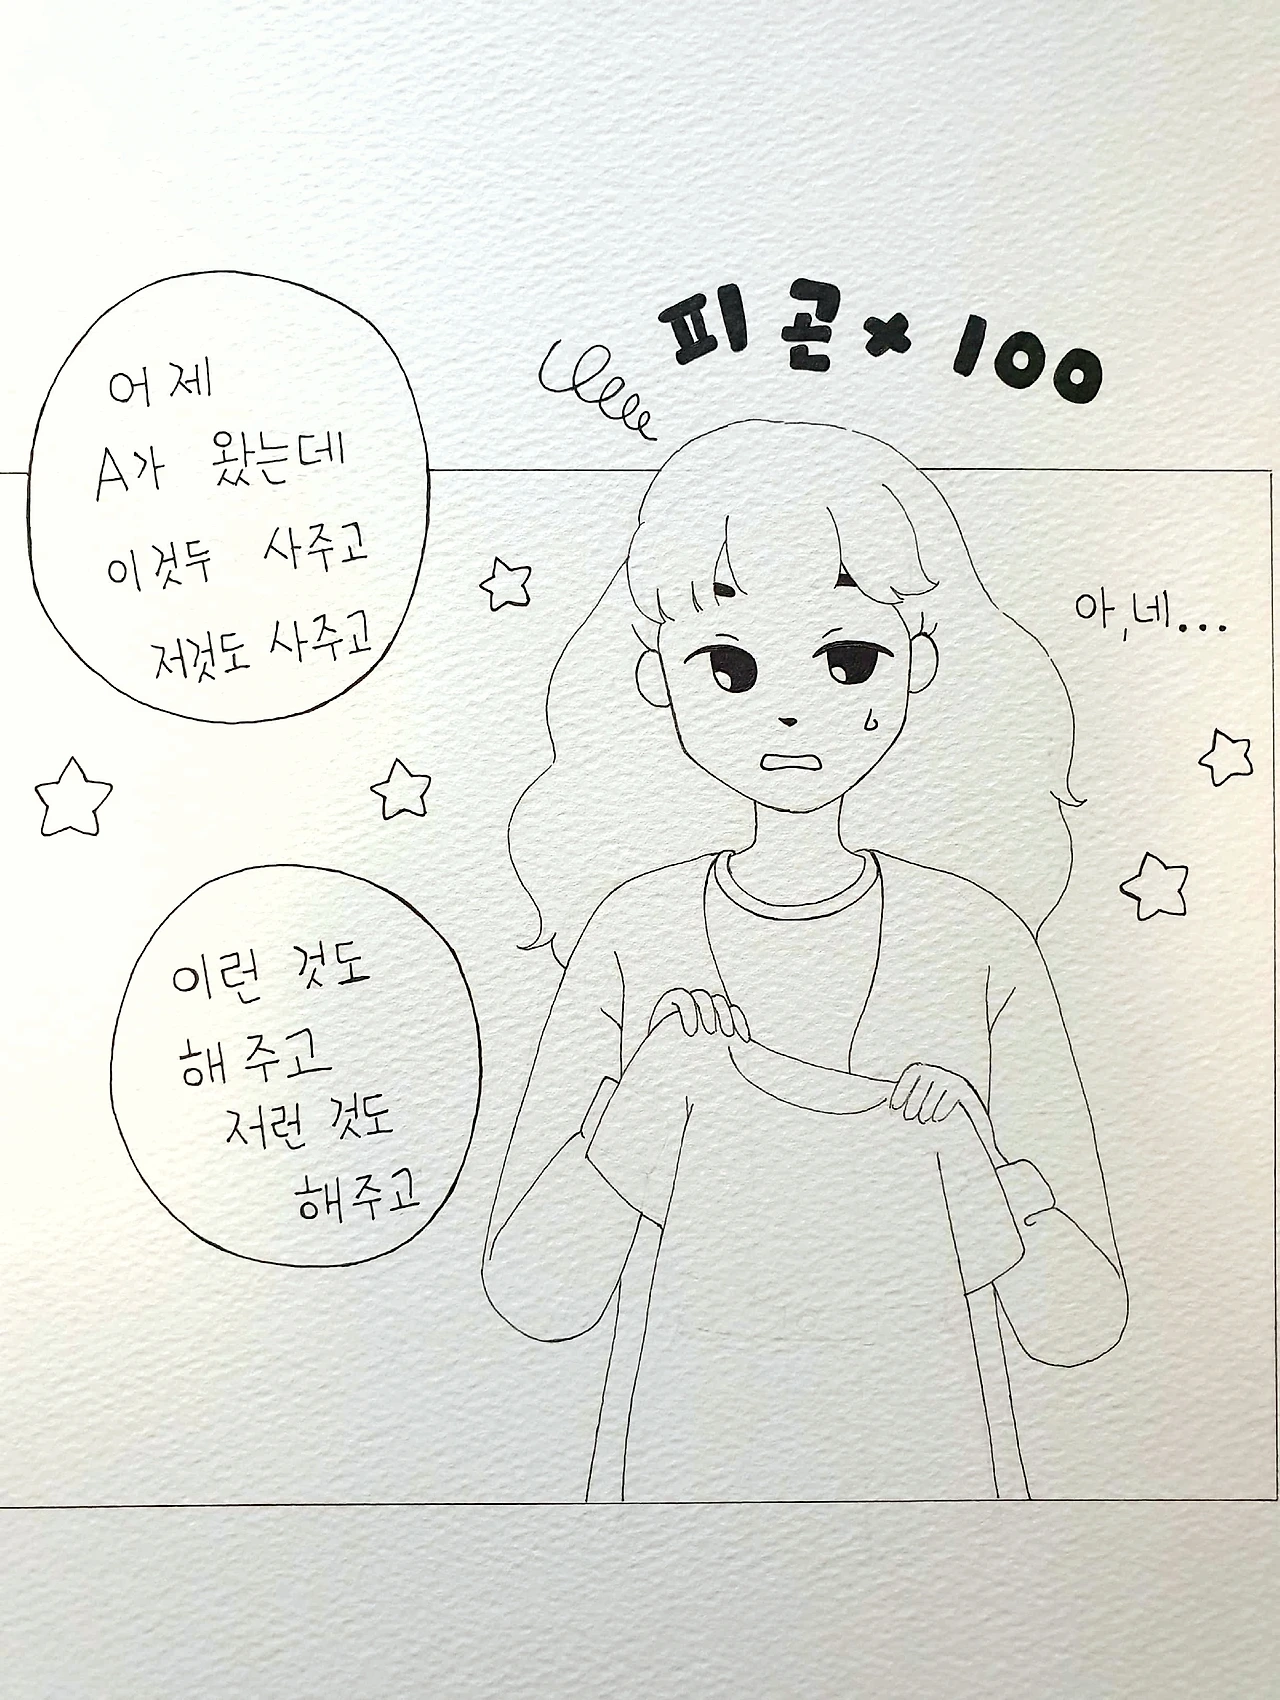 피곤×100
어제
A가 왔는데
이것두 사주고
저것도 사주고
아,네...
이런 것도
해주고
저런 것도
해주고